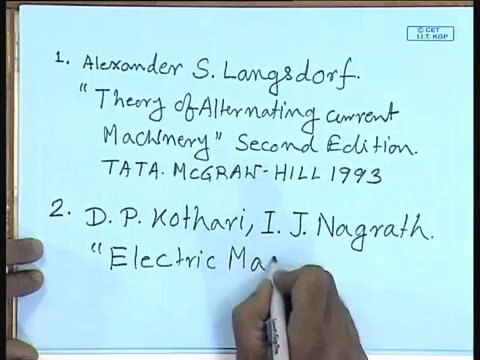 © CET
I.I.T. KGP
1. Alexander S. Langsdorf.
"Theory of Alternating current
Machinery" Second Edition.
TATA. McGRAW-HILL 1993
2. D. P. Kothari, I. J. Nagrath.
"Electric Ma